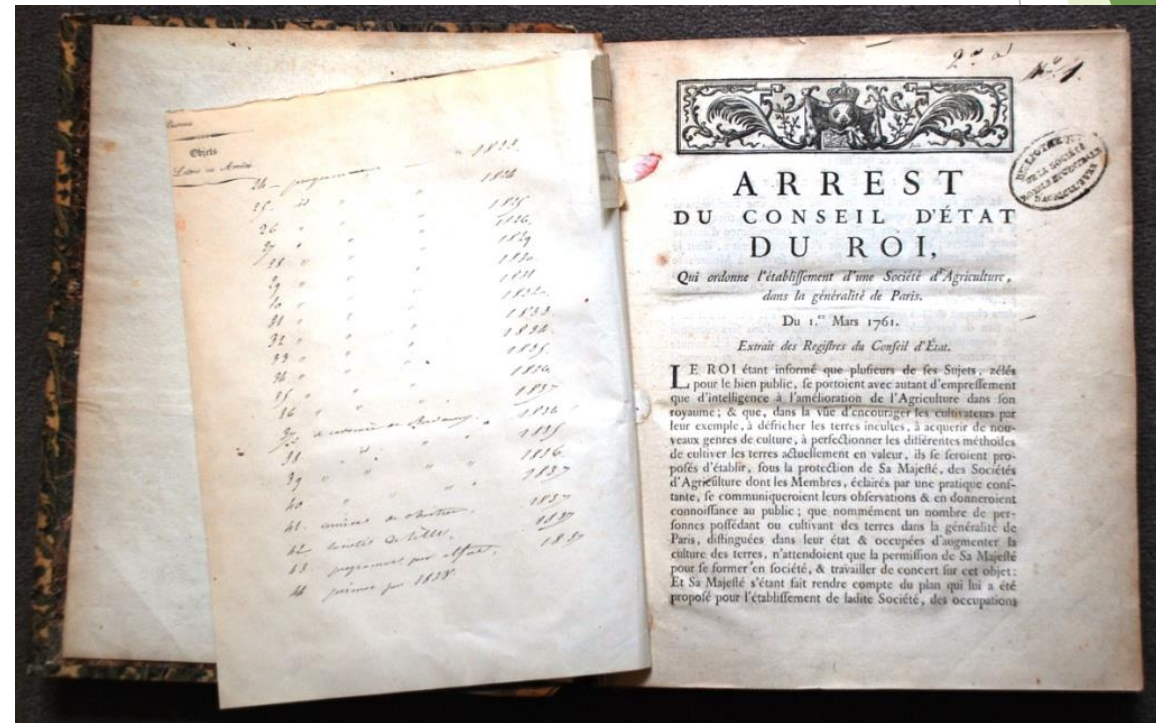 Objets
24 – programme 1823.
25. id " 1824
26 " " 1825
1826.
1829
1830
1831
1832
1833
1834
1835
1836
1837
1836
1835
1836
1837
1837
1837
43 programme pour alfort, 1837
44 primes pour 1838
2e a No. 1.
BIBLIOTHEQUE
DE LA SOCIÉTÉ
ROYALE ET CENTRALE
D'AGRICULTURE
ARREST
DU CONSEIL D'ÉTAT
DU ROI,
Qui ordonne l'établiſſement d'une Société d'Agriculture,
dans la généralité de Paris.
Du 1.er Mars 1761.
Extrait des Regiſtres du Conſeil d'État.
LE ROI étant informé que pluſieurs de ſes Sujets, zélés
pour le bien public, ſe portoient avec autant d'empreſſement
que d'intelligence à l'amélioration de l'Agriculture dans ſon
royaume; & que, dans la vûe d'encourager les cultivateurs par
leur exemple, à défricher les terres incultes, à acquerir de nou-
veaux genres de culture, à perfectionner les différentes méthodes
de cultiver les terres actuellement en valeur, ils ſe ſeroient pro-
poſés d'établir, ſous la protection de Sa Majeſté, des Sociétés
d'Agriculture dont les Membres, éclairés par une pratique conſ-
tante, ſe communiqueroient leurs obſervations & en donneroient
connoiſſance au public; que nommément un nombre de per-
ſonnes poſſédant ou cultivant des terres dans la généralité de
Paris, diſtinguées dans leur état & occupées d'augmenter la
culture des terres, n'attendoient que la permiſſion de Sa Majeſté
pour ſe former en ſociété, & travailler de concert ſur cet objet:
Et Sa Majeſté s'étant fait rendre compte du plan qui lui a été
propoſé pour l'établiſſement de ladite Société, des occupations